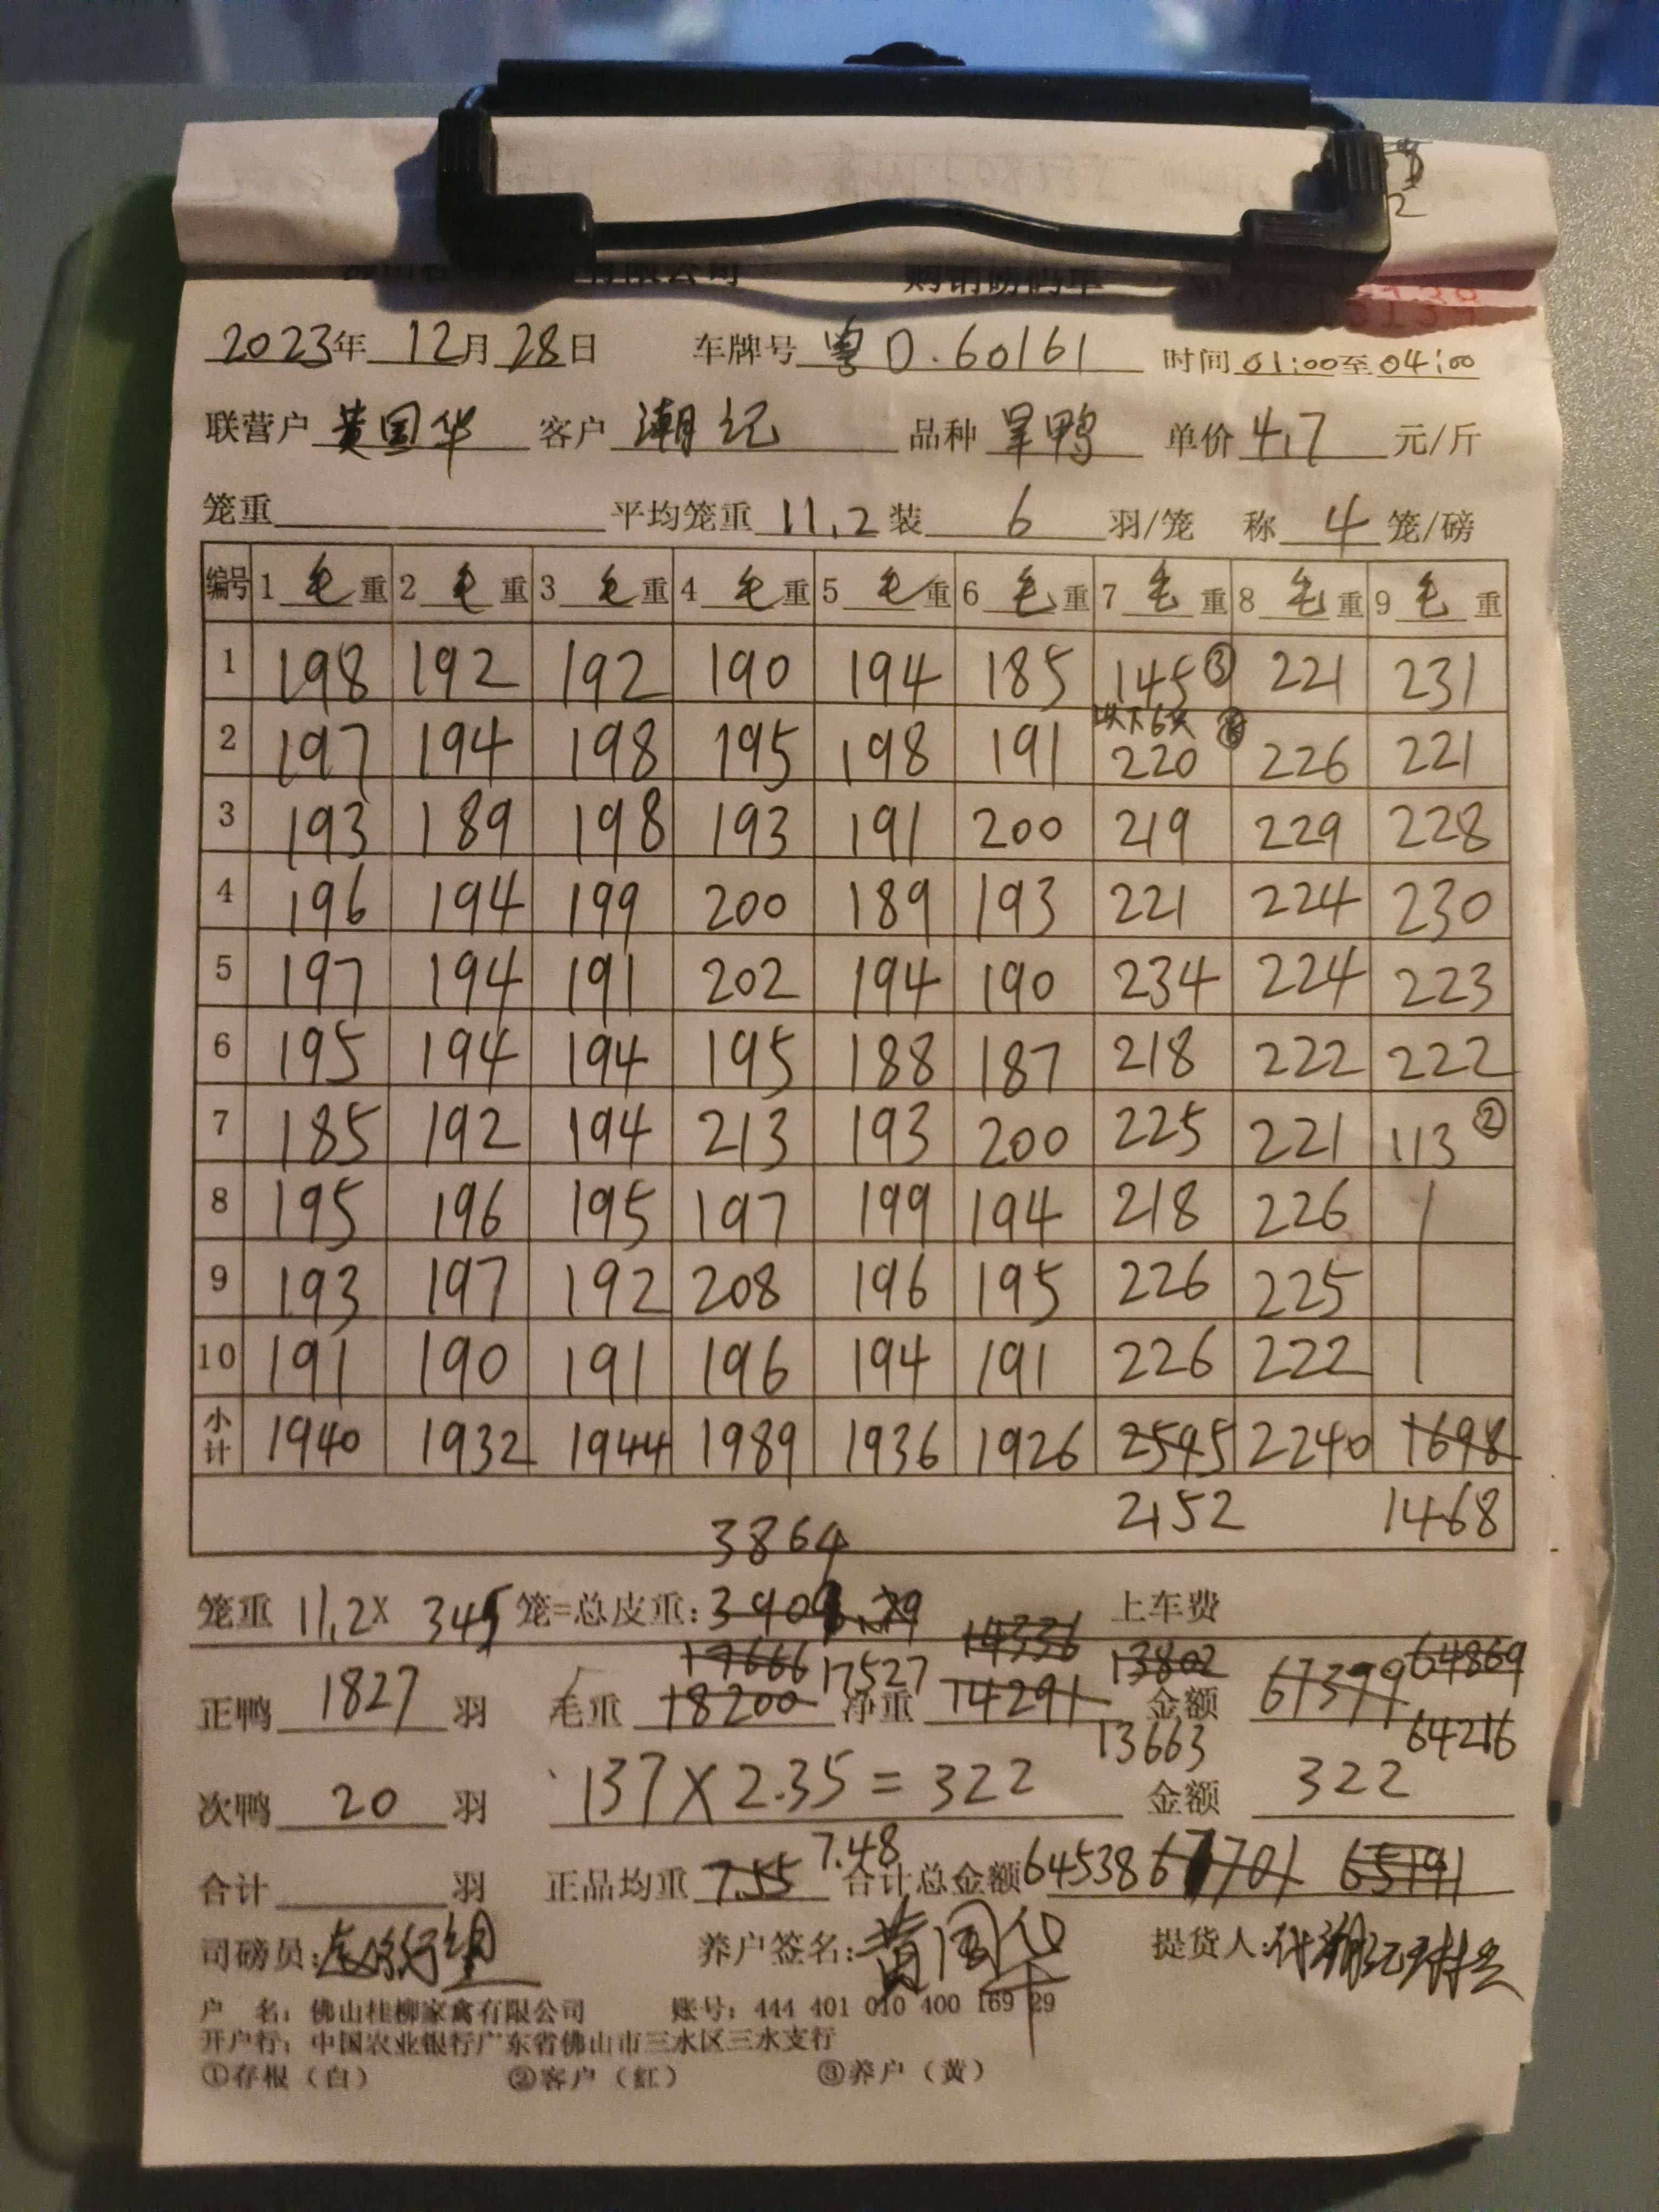 有限公司 购销磅码单 No
2023年12月28日 车牌号 粤D.60161 时间 01:00至04:00
联营户 黄国华 客户 潮记 品种 旱鸭 单价 4.7 元/斤
笼重 平均笼重 11.2 装 6 羽/笼 称 4 笼/磅
编号 1 毛 重 2 毛 重 3 毛 重 4 毛 重 5 毛 重 6 毛 重 7 毛 重 8 毛 重 9 毛 重
1 198 192 192 190 194 185 145 ③ 221 231
以下6只
2 197 194 198 195 198 191 220 226 221
3 193 189 198 193 191 200 219 229 228
4 196 194 199 200 189 193 221 224 230
5 197 194 191 202 194 190 234 224 223
6 195 194 194 195 188 187 218 222 222
7 185 192 194 213 193 200 225 221 113 ②
8 195 196 195 197 199 194 218 226
9 193 197 192 208 196 195 226 225
10 191 190 191 196 194 191 226 222
小计 1940 1932 1944 1989 1936 1926 2595 2240 1698
2152 1468
3864
笼重 11.2X 345 笼=总皮重: 上车费
17666 17527 14336 13802 64869
正鸭 1827 羽 毛重 18200 净重 14291 金额 67379
13663 64216
次鸭 20 羽 137×2.35=322 金额 322
7.48
合计 羽 正品均重 7.55 合计总金额 64538 67701 65191
司磅员: 养户签名: 黄国华 提货人:
户 名: 佛山桂柳家禽有限公司 账号: 444 401 010 400 169 29
开户行: 中国农业银行广东省佛山市三水区三水支行
①存根(白) ②客户(红) ③养户(黄)